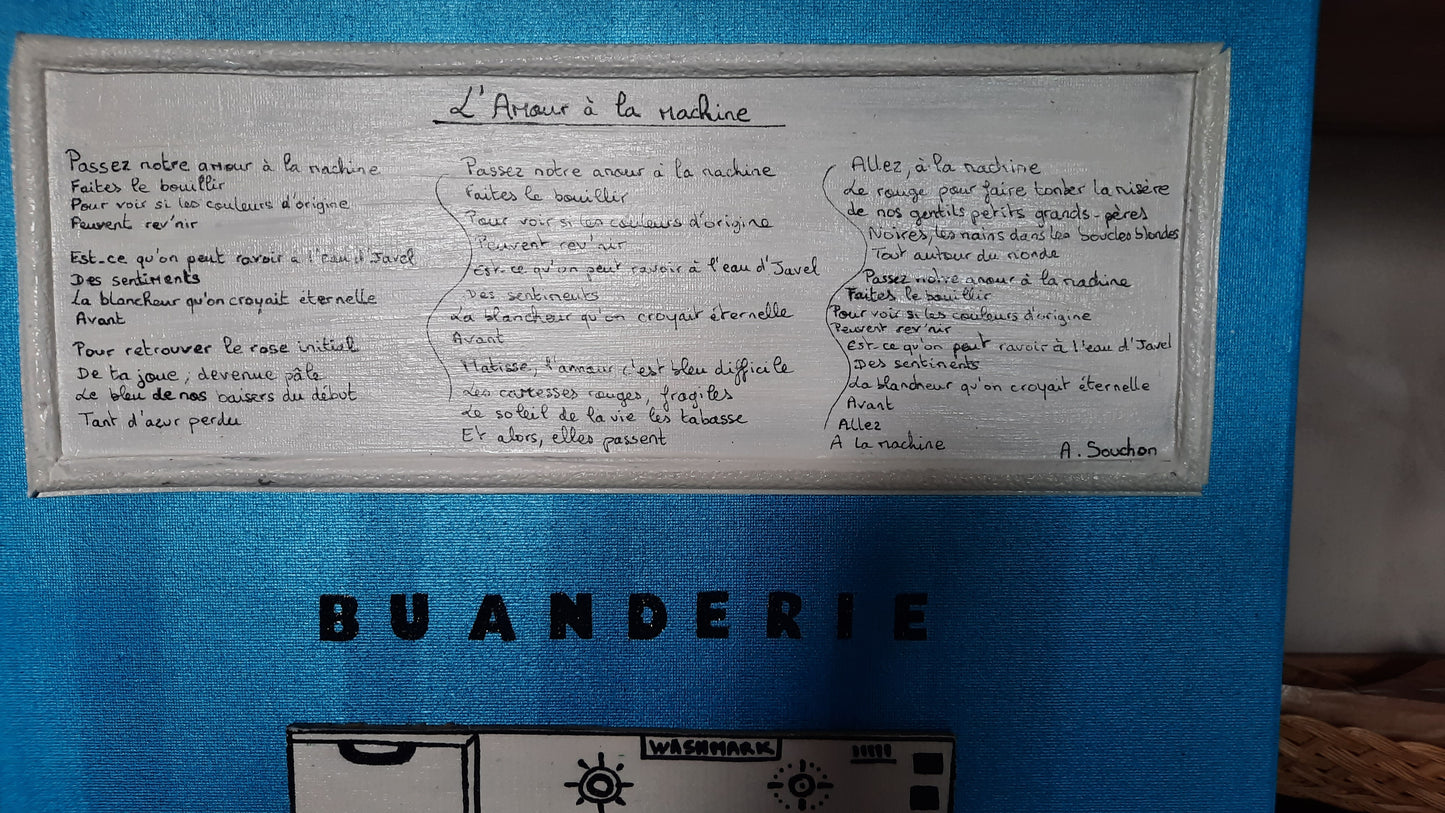 L'Amour à la machine
Passez notre amour à la machine
Faites le bouillir
Pour voir si les couleurs d'origine
Peuvent rev'nir
Est-ce qu'on peut ravoir à l'eau d'Javel
Des sentiments
La blancheur qu'on croyait éternelle
Avant
Pour retrouver le rose initial
De ta joue, devenue pâle
Le bleu de nos baisers du début
Tant d'azur perdu
Passez notre amour à la machine
Faites le bouillir
Pour voir si les couleurs d'origine
Peuvent rev'nir
Est-ce qu'on peut ravoir à l'eau d'Javel
Des sentiments
La blancheur qu'on croyait éternelle
Avant
Matisse, l'amour c'est bleu difficile
Les caresses rouges, fragiles
Le soleil de la vie les tabasse
Et alors, elles passent
Allez, à la machine
Le rouge pour faire tomber la misère
de nos gentils petits grands-pères
Noires, les mains dans les boucles blondes
Tout autour du monde
Passez notre amour à la machine
Faites le bouillir
Pour voir si les couleurs d'origine
Peuvent rev'nir
Est-ce qu'on peut ravoir à l'eau d'Javel
Des sentiments
La blancheur qu'on croyait éternelle
Avant
Allez
A la machine
A. Souchon
BUANDERIE
WASHMARK